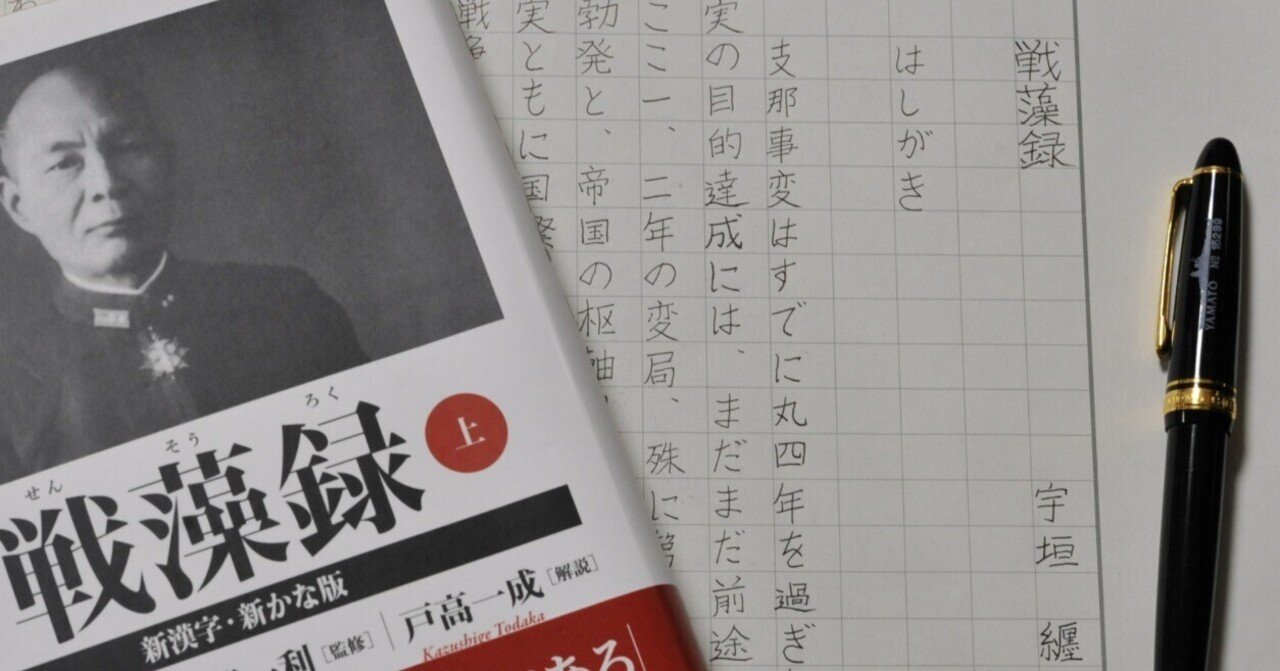 戦藻録 宇垣 纏
はしがき
支那事変はすでに丸四年を過ぎ
実の目的達成には、まだまだ前途
ここ一、二年の変局、殊に
勃発と、帝国の枢軸
実ともに国際
戦
せん そう ろく
戦藻録 上
新漢字・新かな版
利[監修]
戸高一成[解説]
Kazushige Todaka
YAMATO № 15299